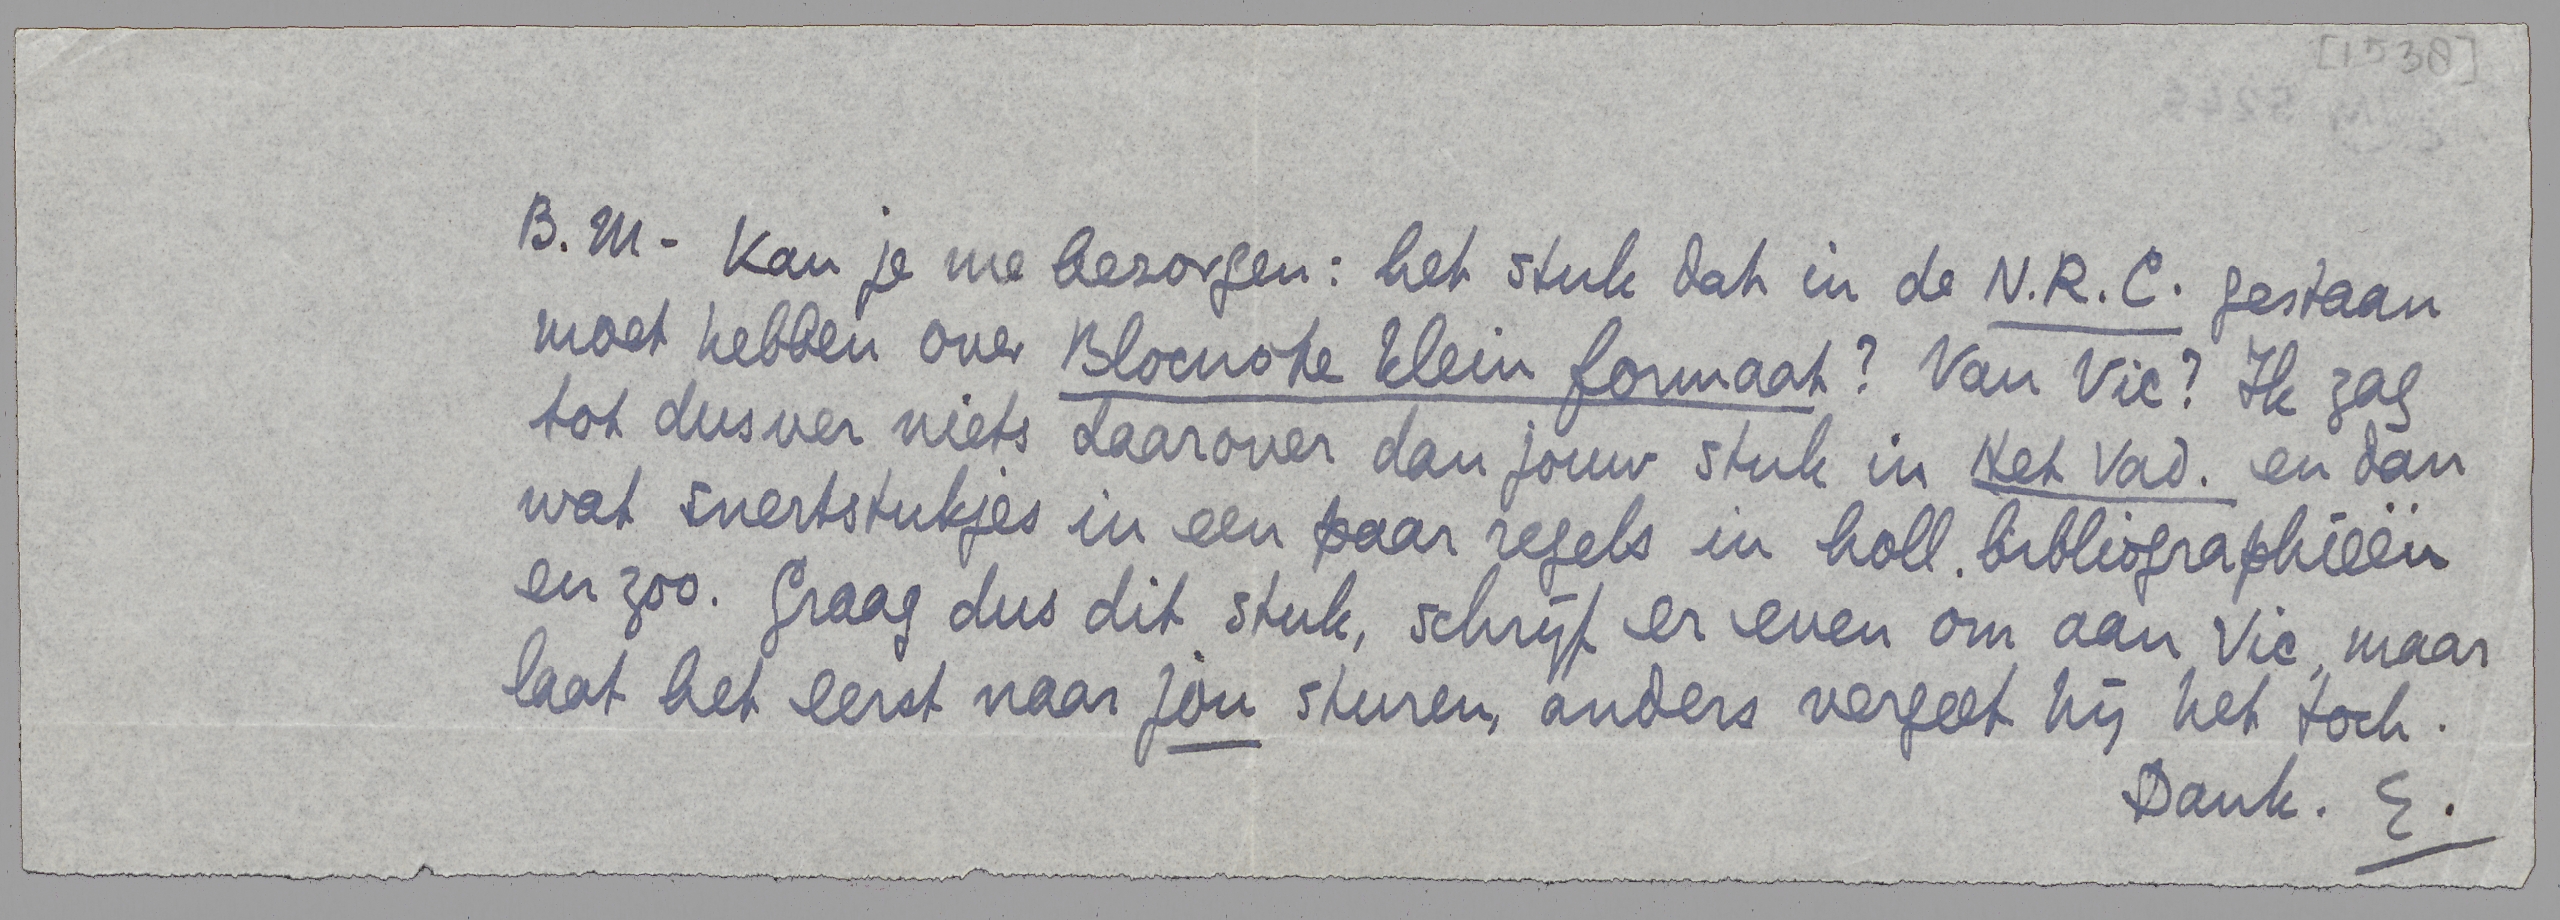 [1538]
B.M- Kan je me bezorgen: het stuk dat in de N.R.C. gestaan
moet hebben over Blocnote klein formaat? Van Vic? Ik zag
tot dusver niets daarover dan jouw stuk in Het Vad. en dan
wat snertstukjes in een paar regels in holl. bibliographieën
en zoo. Graag dus dit stuk, schrijf er even om aan Vic, maar
laat het eerst naar jòu sturen, anders vergeet hij het toch.
Dank. E.